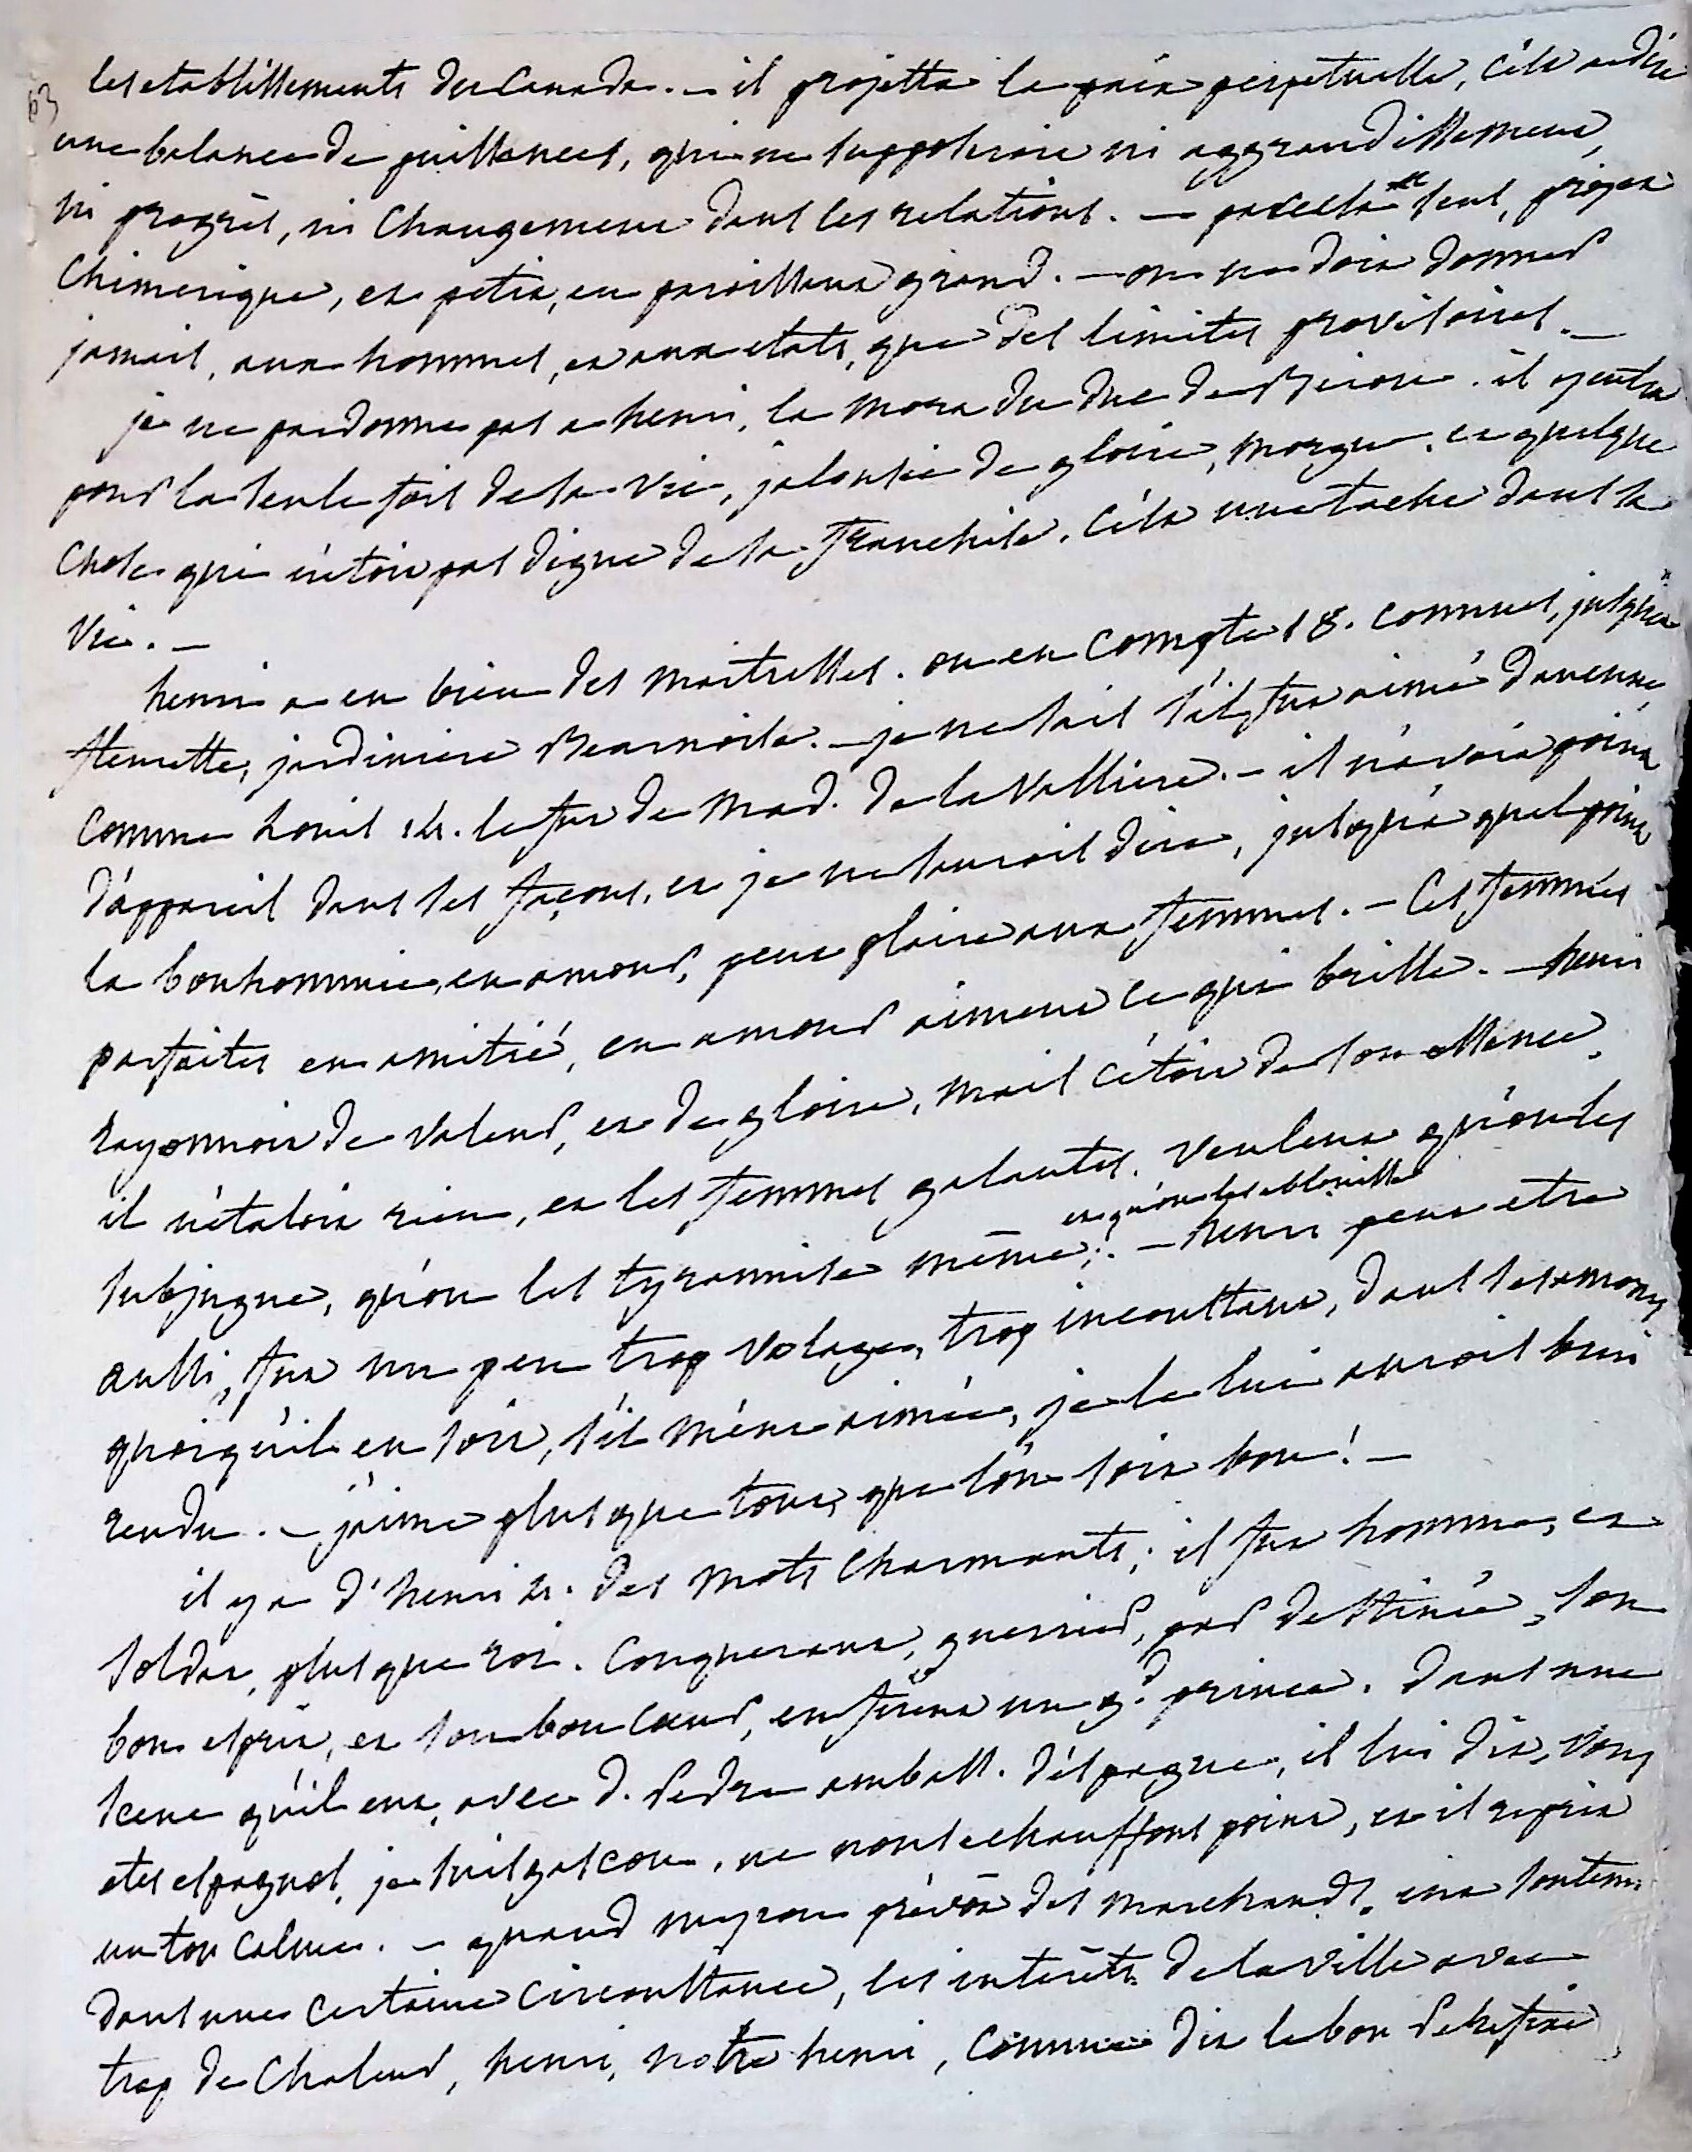 63
les etablissements du Canada. — il projetta la paix perpetuelle, c'est a dire
une balance de puissances, qui ne supposeroit ni aggrandissement,
ni progrès, ni changement dans les relations. — par cela seul, projet
chimerique, et petit, en paroissant grand. — on ne doit donner
jamais, aux hommes, et aux etats, que des limites provisoires. —
je ne pardonne pas a henri, la mort du duc de Biron. il y entra
pour la seule fois de sa vie, jalousie de gloire, morgue, et quelque
chose qui n'etoit pas digne de sa franchise. c'est une tache dans sa
vie. —
henri a eu bien des maitresses. on en compte 18. connues, jusqu'a
fleurette, jardiniere Bearnoise. — je ne sais s'il fut aimé d'aucune,
comme Louis 14. le fut de Mad. de la Valliere. — il n'avoit point
d'appareil dans ses façons, et je ne saurois dire, jusqu'à quel point
la bonhommie, en amour, peut plaire aux femmes. — les femmes
parfaites en amitié, en amour aiment ce qui brille. — henri
rayonnoit de valeur, et de gloire, mais c'etoit de son essence.
il n'etaloit rien, et les femmes galantes, veulent qu'on les
subjugue, qu'on les tyrannise même, et qu'on les eblouisse. — henri peut etre
aussi, fut un peu trop volage, trop inconstant, dans ses amours
quoiqu'il en soit, s'il m'eut aimée, je le lui aurois bien
rendu. — j'aime plus que tout, que l'on soit bon! —
il y a d'henri 4. des mots charmants; il fut homme, et
soldat, plus que roi. Conquerant, guerrier, par destinée, son
bon esprit, et son bon cœur, en firent un gd. prince. dans une
scene qu'il eut, avec d. Pedre ambass. d'espagne, il lui dit, vous
etes espagnol, je suis gascon, ne nous echauffons point, et il reprit
un ton calme. — quand myron prévôt des marchands, eut soutenu
dans une certaine circonstance, les intérêts de la ville avec
trop de chaleur, henri, notre henri, comme dit le bon Perefixe